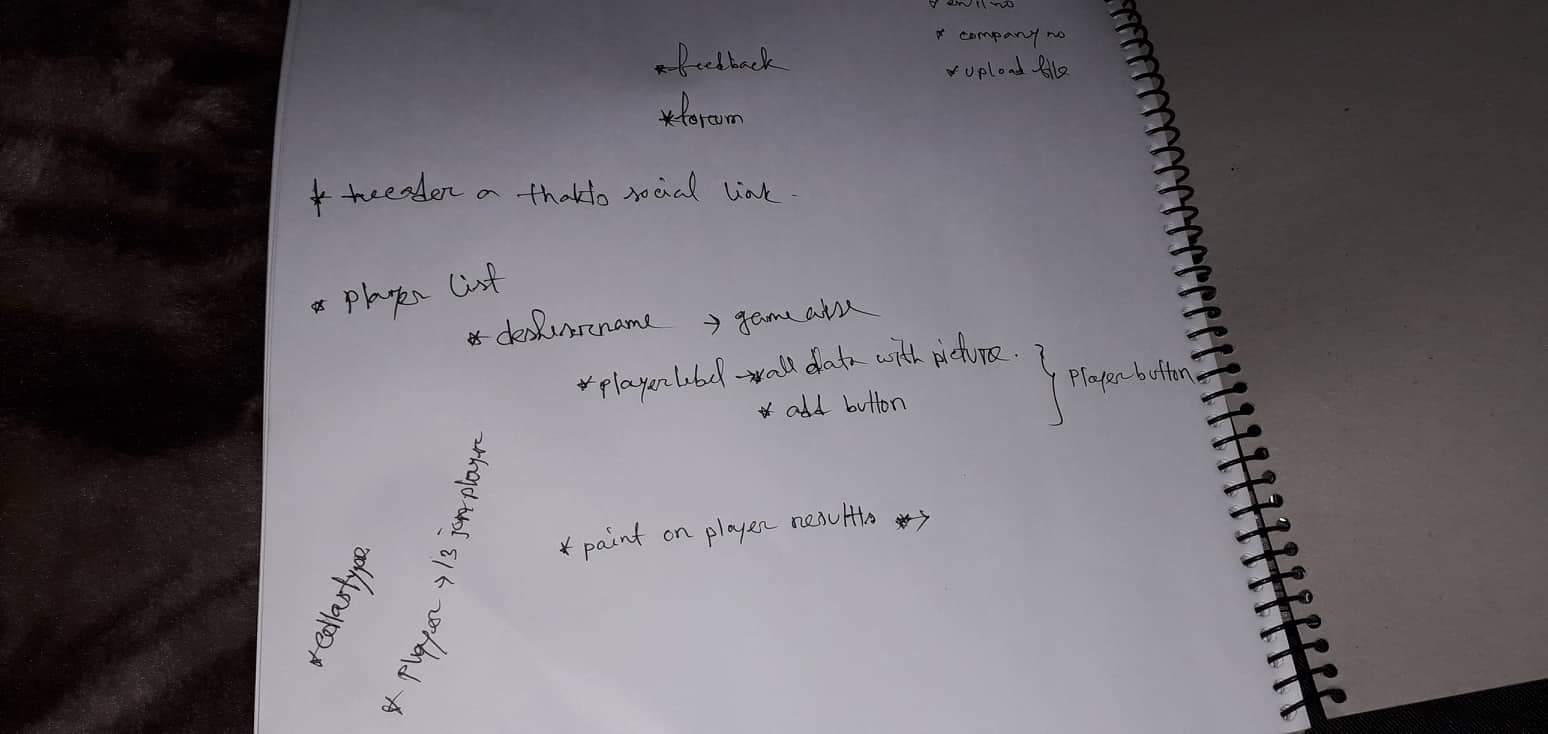 * company no
* upload file
* feedback
* forum
* header a thakto social link.
* player list
* → game
* player lebel → * all data with picture.
* add button
} Player button
* paint on player results * →
* player → 13 jon player
*